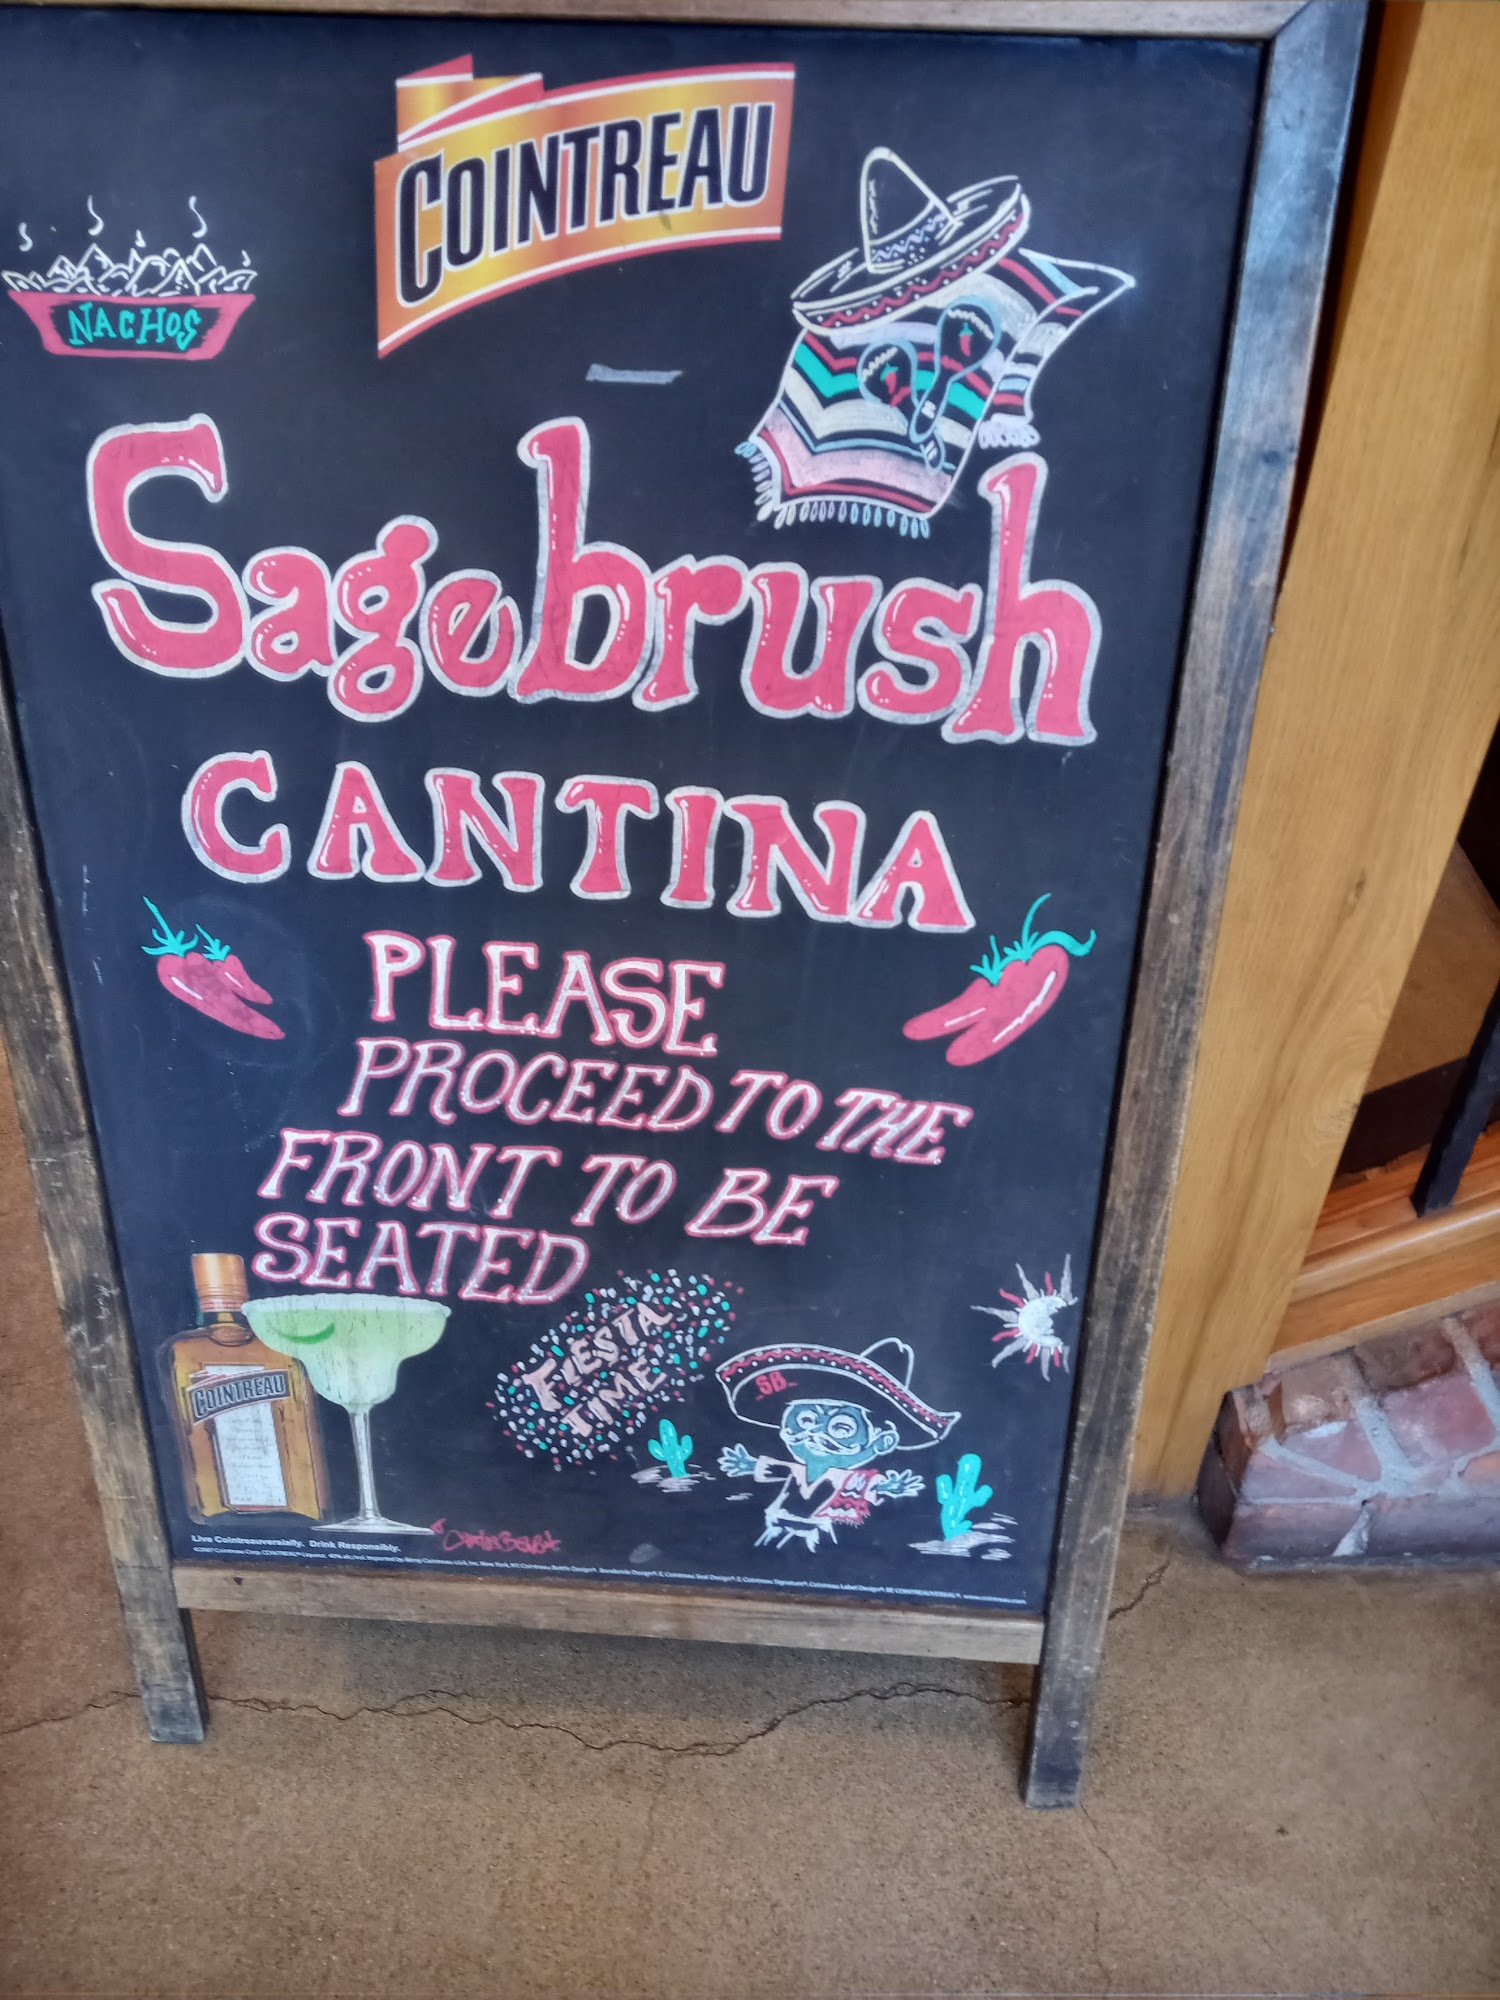 COINTREAU
NACHOS
Sagebrush
CANTINA
PLEASE
PROCEED TO THE
FRONT TO BE
SEATED
FIESTA
TIME
SB
COINTREAU
Live Cointreauversially. Drink Responsibly.